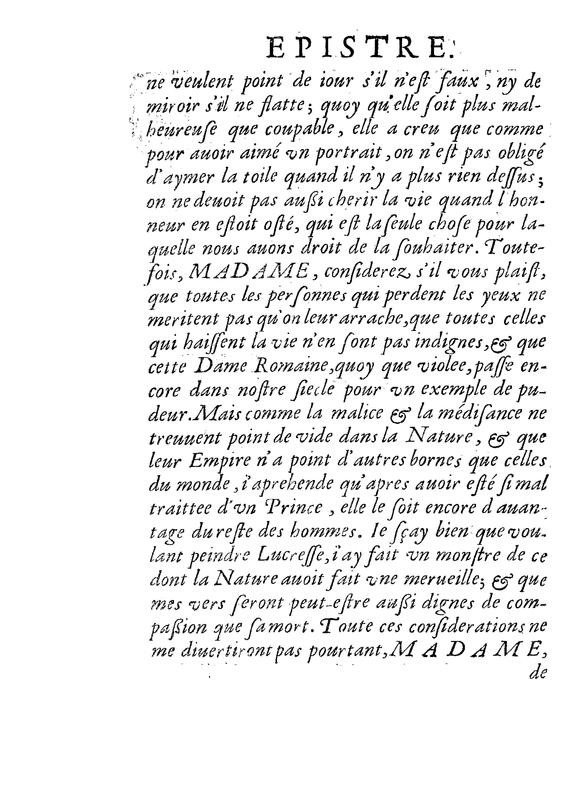 EPISTRE.
ne veulent point de iour s'il n'eſt faux, ny de
miroir s'il ne flatte; quoy qu'elle ſoit plus mal-
heureuſe que coupable, elle a creu que comme
pour auoir aimé vn portrait, on n'eſt pas obligé
d'aymer la toile quand il n'y a plus rien deſſus;
on ne deuoit pas auſſi cherir la vie quand l'hon-
neur en eſtoit oſté, qui eſt la ſeule choſe pour la-
quelle nous auons droit de la ſouhaiter. Toute-
fois, MADAME, conſiderez, s'il vous plaiſt,
que toutes les perſonnes qui perdent les yeux ne
meritent pas qu'on leur arrache, que toutes celles
qui haiſſent la vie n'en ſont pas indignes, & que
cette Dame Romaine, quoy que violee, paſſe en-
core dans noſtre ſiecle pour vn exemple de pu-
deur. Mais comme la malice & la médiſance ne
treuuent point de vide dans la Nature, & que
leur Empire n'a point d'autres bornes que celles
du monde, i'aprehende qu'apres auoir eſté ſi mal
traittee d'vn Prince, elle le ſoit encore d'auan-
tage du reſte des hommes. Ie ſçay bien que vou-
lant peindre Lucreſſe, i'ay fait vn monſtre de ce
dont la Nature auoit fait vne merueille; & que
mes vers ſeront peut-eſtre auſſi dignes de com-
paſſion que ſa mort. Toute ces conſiderations ne
me diuertiront pas pourtant, MADAME,
de